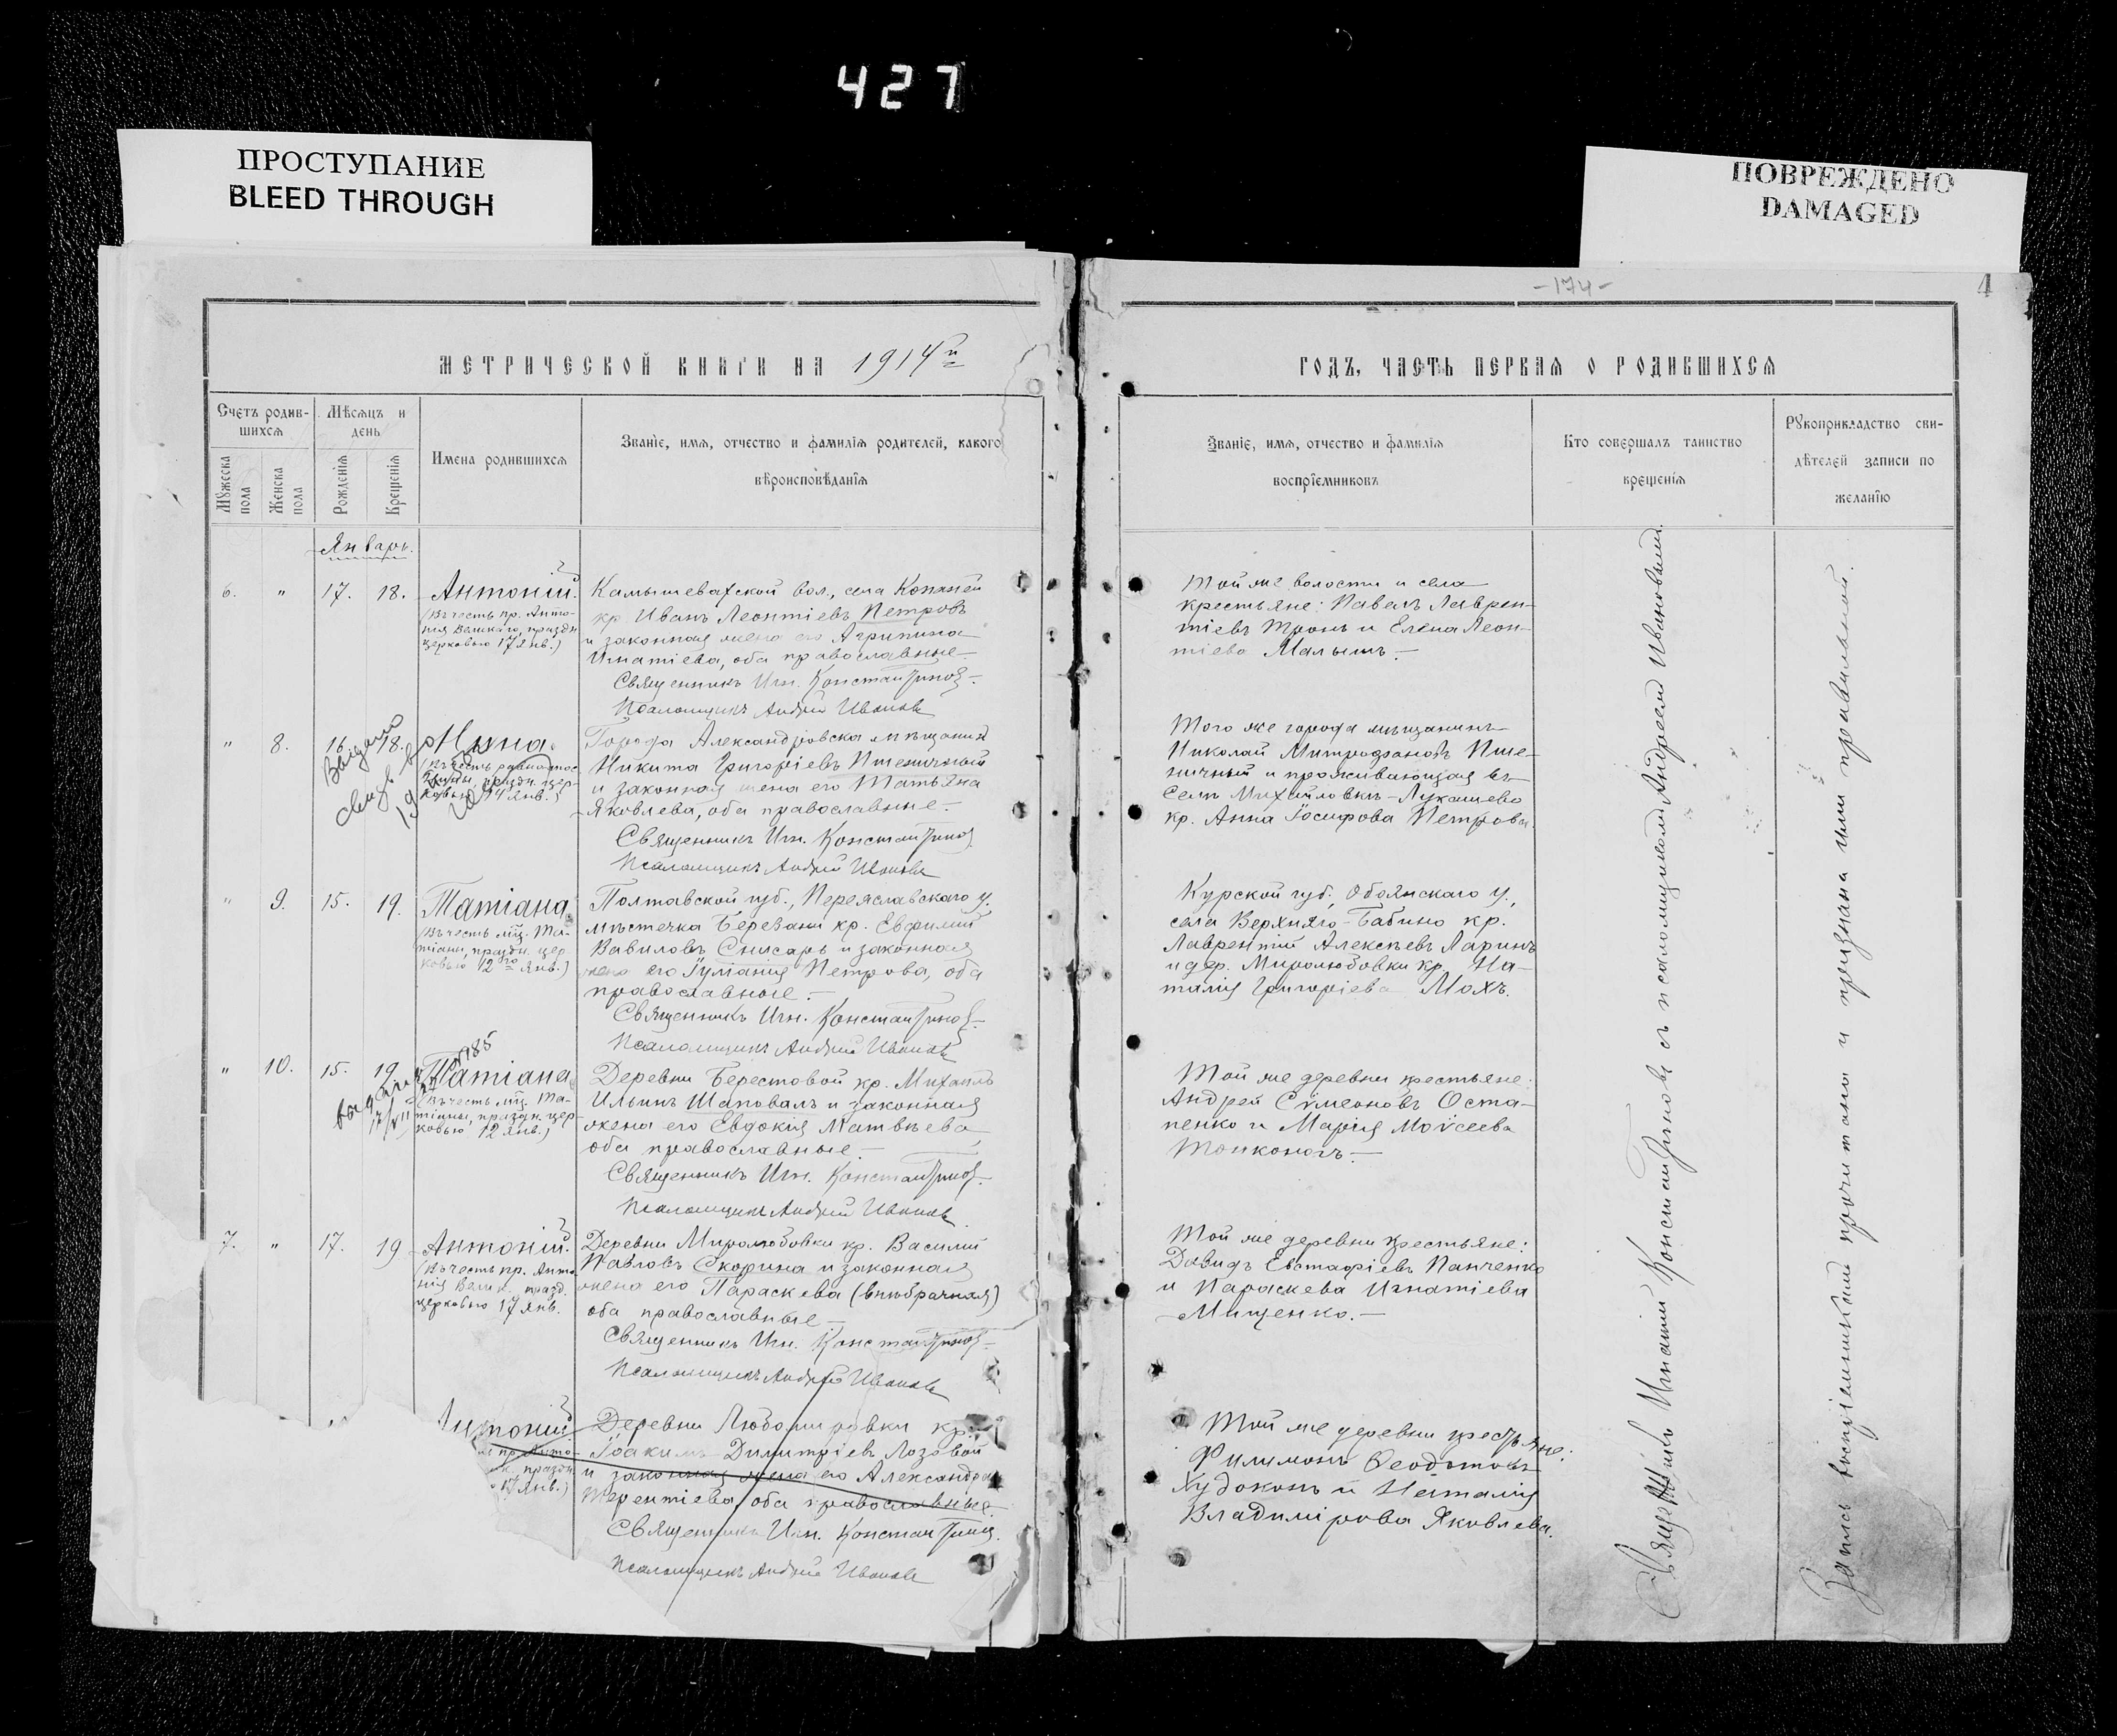 427
ПРОСТУПАНИЕ
BLEED THROUGH
ПОВРЕЖДЕНО
DAMAGED
МЕТРИЧЕСКОЙ КНИГИ НА 1914й
Счетъ родив-
шихся
Мѣсяцъ и
день
Имена родившихся
Званіе, имя, отчество и фамилія родителей, какого
вѣроисповѣданія
Мужеска
пола
Женска
пола
Рожденія
Крещенія
Январь.
6. " 17. 18. Антоній.
(Въ честь пр. Анто-
нія Великаго, праздн
церковью 17 Янв.)
Камышеватской вол., села Копаней
кр Иванъ Леонтіевъ Петровъ
и законная жена его Агрипина
Игнатіева, оба православные
Священникъ Игн. Константиновъ
Псаломщикъ Андрей Ивановъ
" 8. 16. 18. Нина.
(Въ честь равноапос
Нины, праздн. цер-
ковью 14 Янв.)
Города Александровска мѣщанинъ
Никита Григоріевъ Пшеничный
и законная жена его Татьяна
Яковлева, оба православные.
Священникъ Игн. Константиновъ
Псаломщикъ Андрей Ивановъ
" 9. 15. 19. Татіана
(Въ честь мц. Та-
тіаны, праздн. цер
ковью 12го Янв.)
Полтавской губ., Переяславскаго у.
мѣстечка Березани кр. Евфимій
Вавиловъ Снисарь и законная
жена его Іуліанія Петрова, оба
православные.
Священникъ Игн. Константиновъ
Псаломщикъ Андрей Ивановъ
" 10. 15. 19 Татіана
(Въ честь мц. Та-
тіаны, праздн. цер-
ковью 12 Янв.)
Деревни Берестовой кр. Михаилъ
Ильинъ Шаповалъ и законная
жена его Евдокія Матвѣева
оба православные.
Священникъ Игн. Константиновъ
Псаломщикъ Андрей Ивановъ
7. " 17. 19 Антоній.
(Въ честь пр. Анто
нія Велик. празд.
церковью 17 Янв.
Деревни Миролюбовки кр. Василій
Павловъ Скорина и законная
жена его Параскева (внѣбрачная)
оба православные
Священникъ Игн. Константиновъ
Псаломщикъ Андрей Ивановъ
Антоній
пр. Анто-
праздн
17 Янв.)
Деревни Любомировки кр.
Іоакимъ Димитріевъ Лозовой
и законная жена его Александра
Терентіева, оба православные
Священникъ Игн. Константиновъ
Псаломщикъ Андрей Ивановъ
-174-
4
ГОДЪ, ЧАСТЬ ПЕРВАЯ О РОДИВШИХСЯ
Званіе, имя, отчество и фамилія
воспріемниковъ
Кто совершалъ таинство
крещенія
Рукоприкладство сви-
дѣтелей записи по
желанію
Той же волости и села
крестьяне: Павелъ Лаврен-
тіевъ Тронь и Елена Леон-
тіева Малышъ.
Того же города мѣщанинъ
Николай Митрофановъ Пше-
ничный и проживающая въ
селѣ Михайловкѣ-Лукашево
кр. Анна Іосифова Петрова.
Курской губ., Обоянскаго у.,
села Верхняго-Бабино кр.
Лаврентій Алексѣевъ Ларинъ
и дер. Миролюбовки кр. На-
талія Григоріева Мохъ.
Той же деревни крестьяне:
Андрей Сѵмеоновъ Оста-
пенко и Марія Моѵсеева
Тонконогъ.
Той же деревни крестьяне:
Давидъ Евстафіевъ Панченко
и Параскева Игнатіева
Мищенко.
Той же деревни крестьяне:
Филимонъ Ѳеодотовъ
Худоконь и Наталія
Владимірова Яковлева.
Священникъ Игнатій Константиновъ съ псаломщикомъ Андреем Ивановымъ.
Запись воспріемниками прочитана и признана ими правильной.